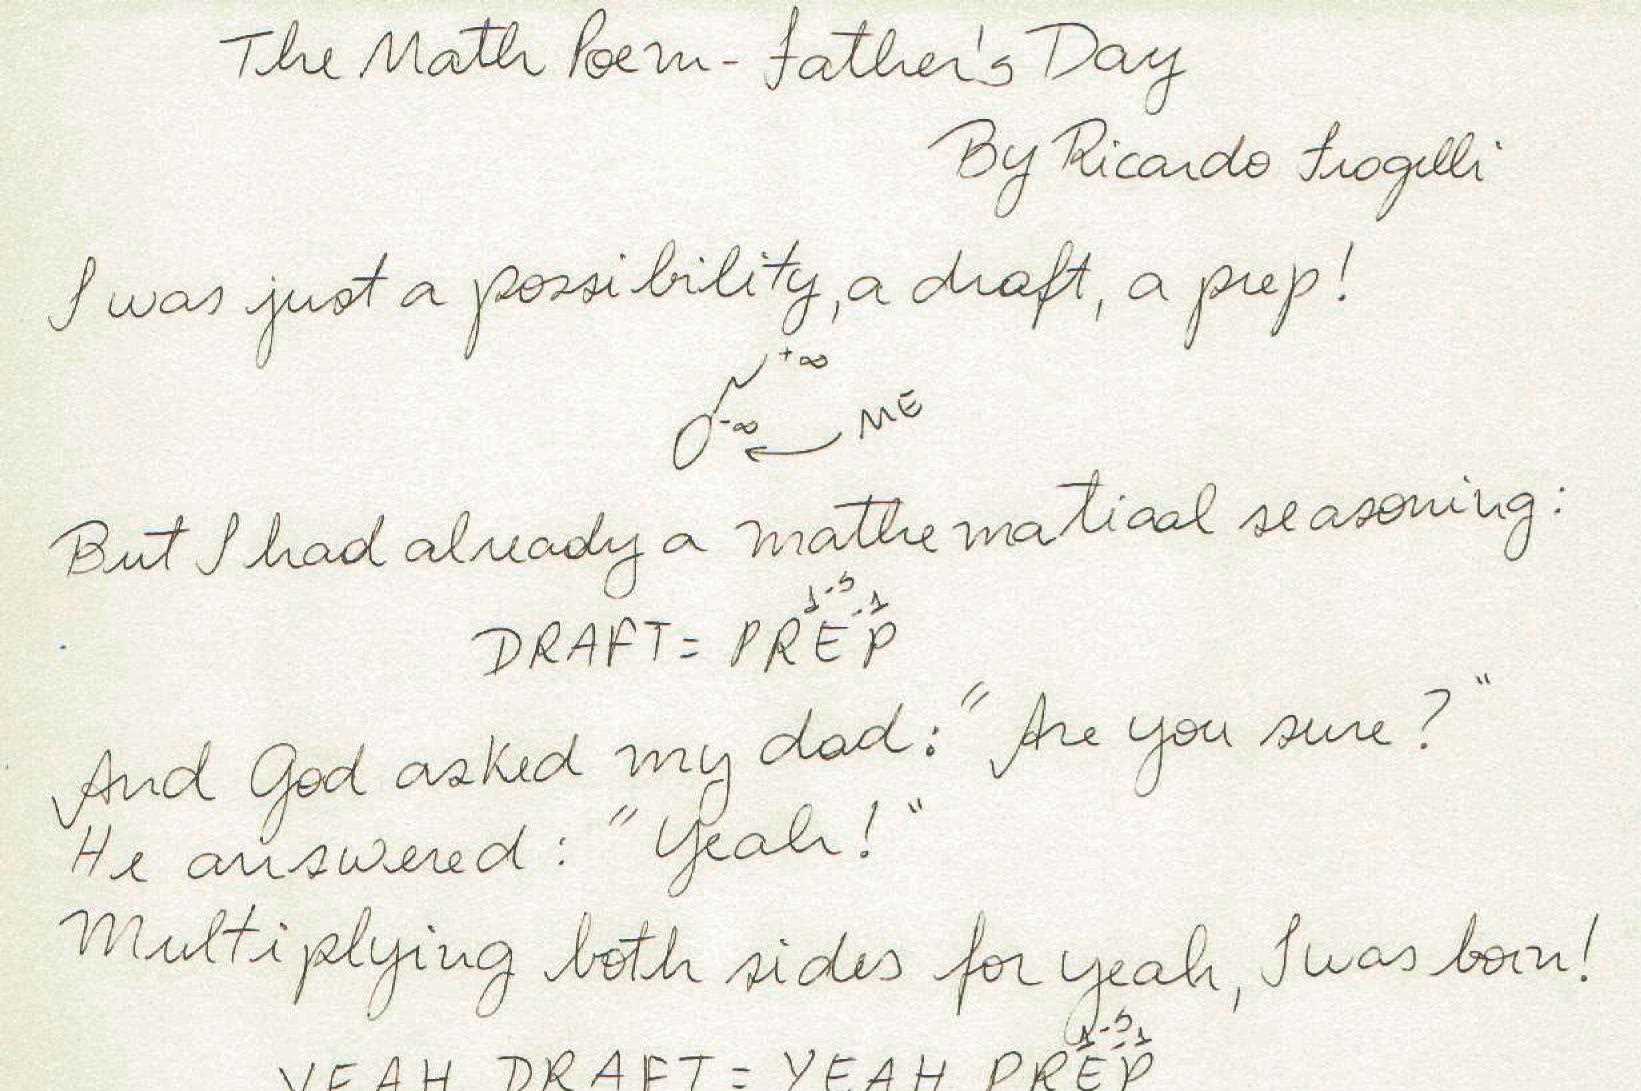 The Math Poem - Father's Day
By Ricardo Fragelli
I was just a possibility, a draft, a prep!
+∞
-∞ ME
But I had already a mathematical seasoning:
DRAFT = PREP
And God asked my dad: "Are you sure?"
He answered: "Yeah!"
Multiplying both sides for yeah, I was born!
YEAH DRAFT = YEAH PREP